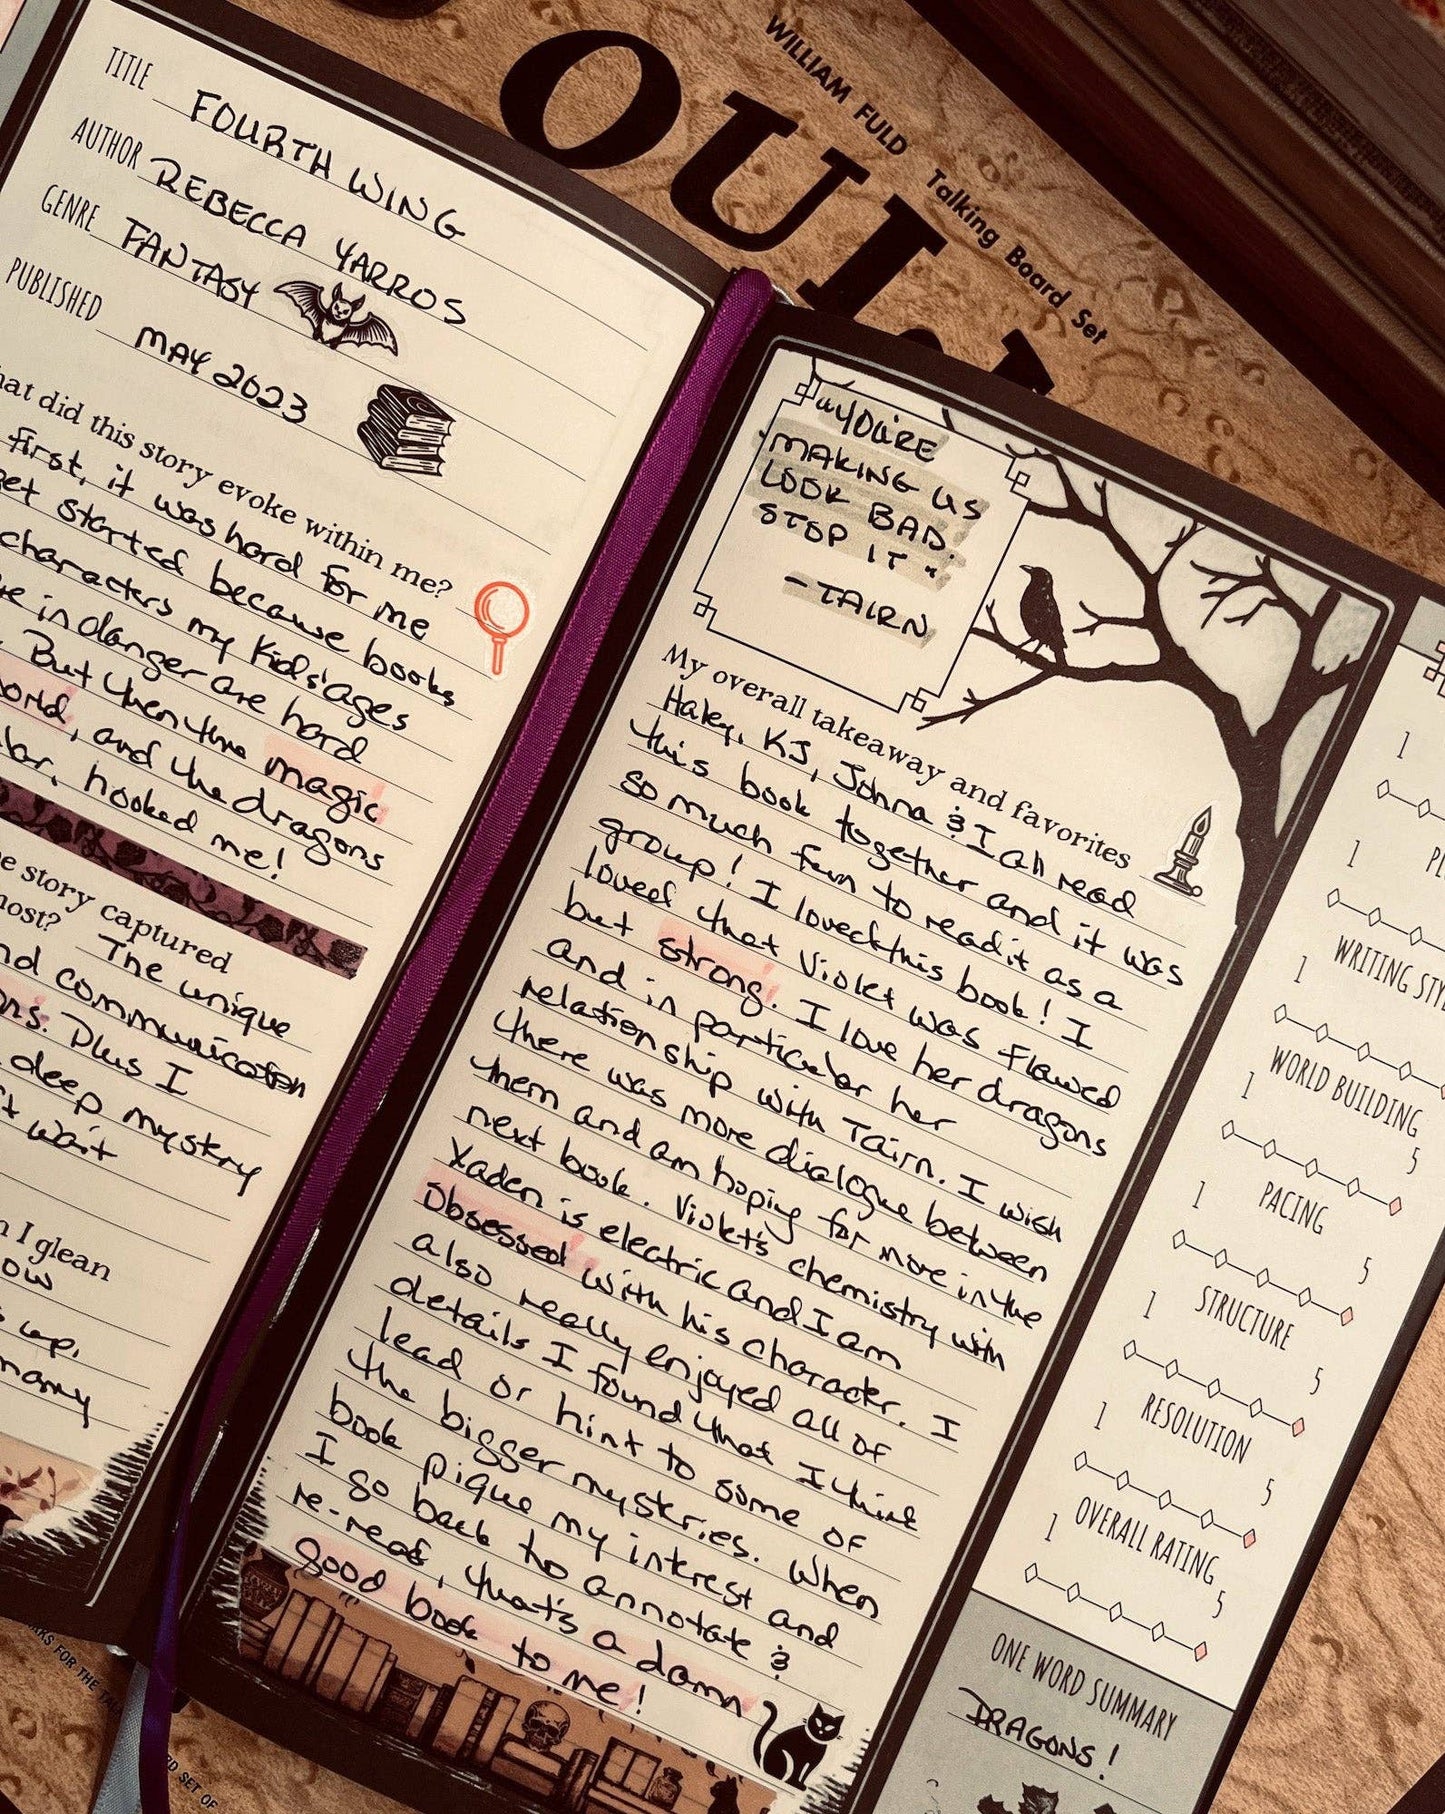 WILLIAM FULD Talking Board Set
OUI
TITLE FOURTH WING
AUTHOR REBECCA YARROS
GENRE FANTASY
PUBLISHED MAY 2023
did this story evoke within me?
first, it was hard for me
get started because books
characters my kids' ages
in danger are hard
But then the magic
world, and the dragons
hooked me!
story captured
most? The unique
and communication
Plus I
deep mystery
wait
I glean
up.
many
"YOU'RE
MAKING US
LOOK BAD.
STOP IT.
-TAIRN
My overall takeaway and favorites
Haley, KJ, Johna & I all read
this book together and it was
so much fun to read it as a
group! I loved this book! I
loved that Violet was flawed
but strong. I love her dragons
and in particular her
relationship with Tairn. I wish
there was more dialogue between
them and am hoping for more in the
next book. Violet's chemistry with
Xaden is electric and I am
Obsessed with his character. I
also really enjoyed all of
details I found that I think
lead or hint to some of
the bigger mysteries. When
book pique my interest and
I go back to annotate &
re-read, that's a damn
good book to me!
1
1
WRITING STY
1
WORLD BUILDING
1 5
PACING
1 5
STRUCTURE
1 5
RESOLUTION
1 5
OVERALL RATING
1 5
ONE WORD SUMMARY
DRAGONS!
FOR THE
SET OF